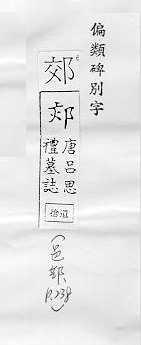 偏類碑別字
郊
唐呂思
禮墓誌
(邑部, p.238)